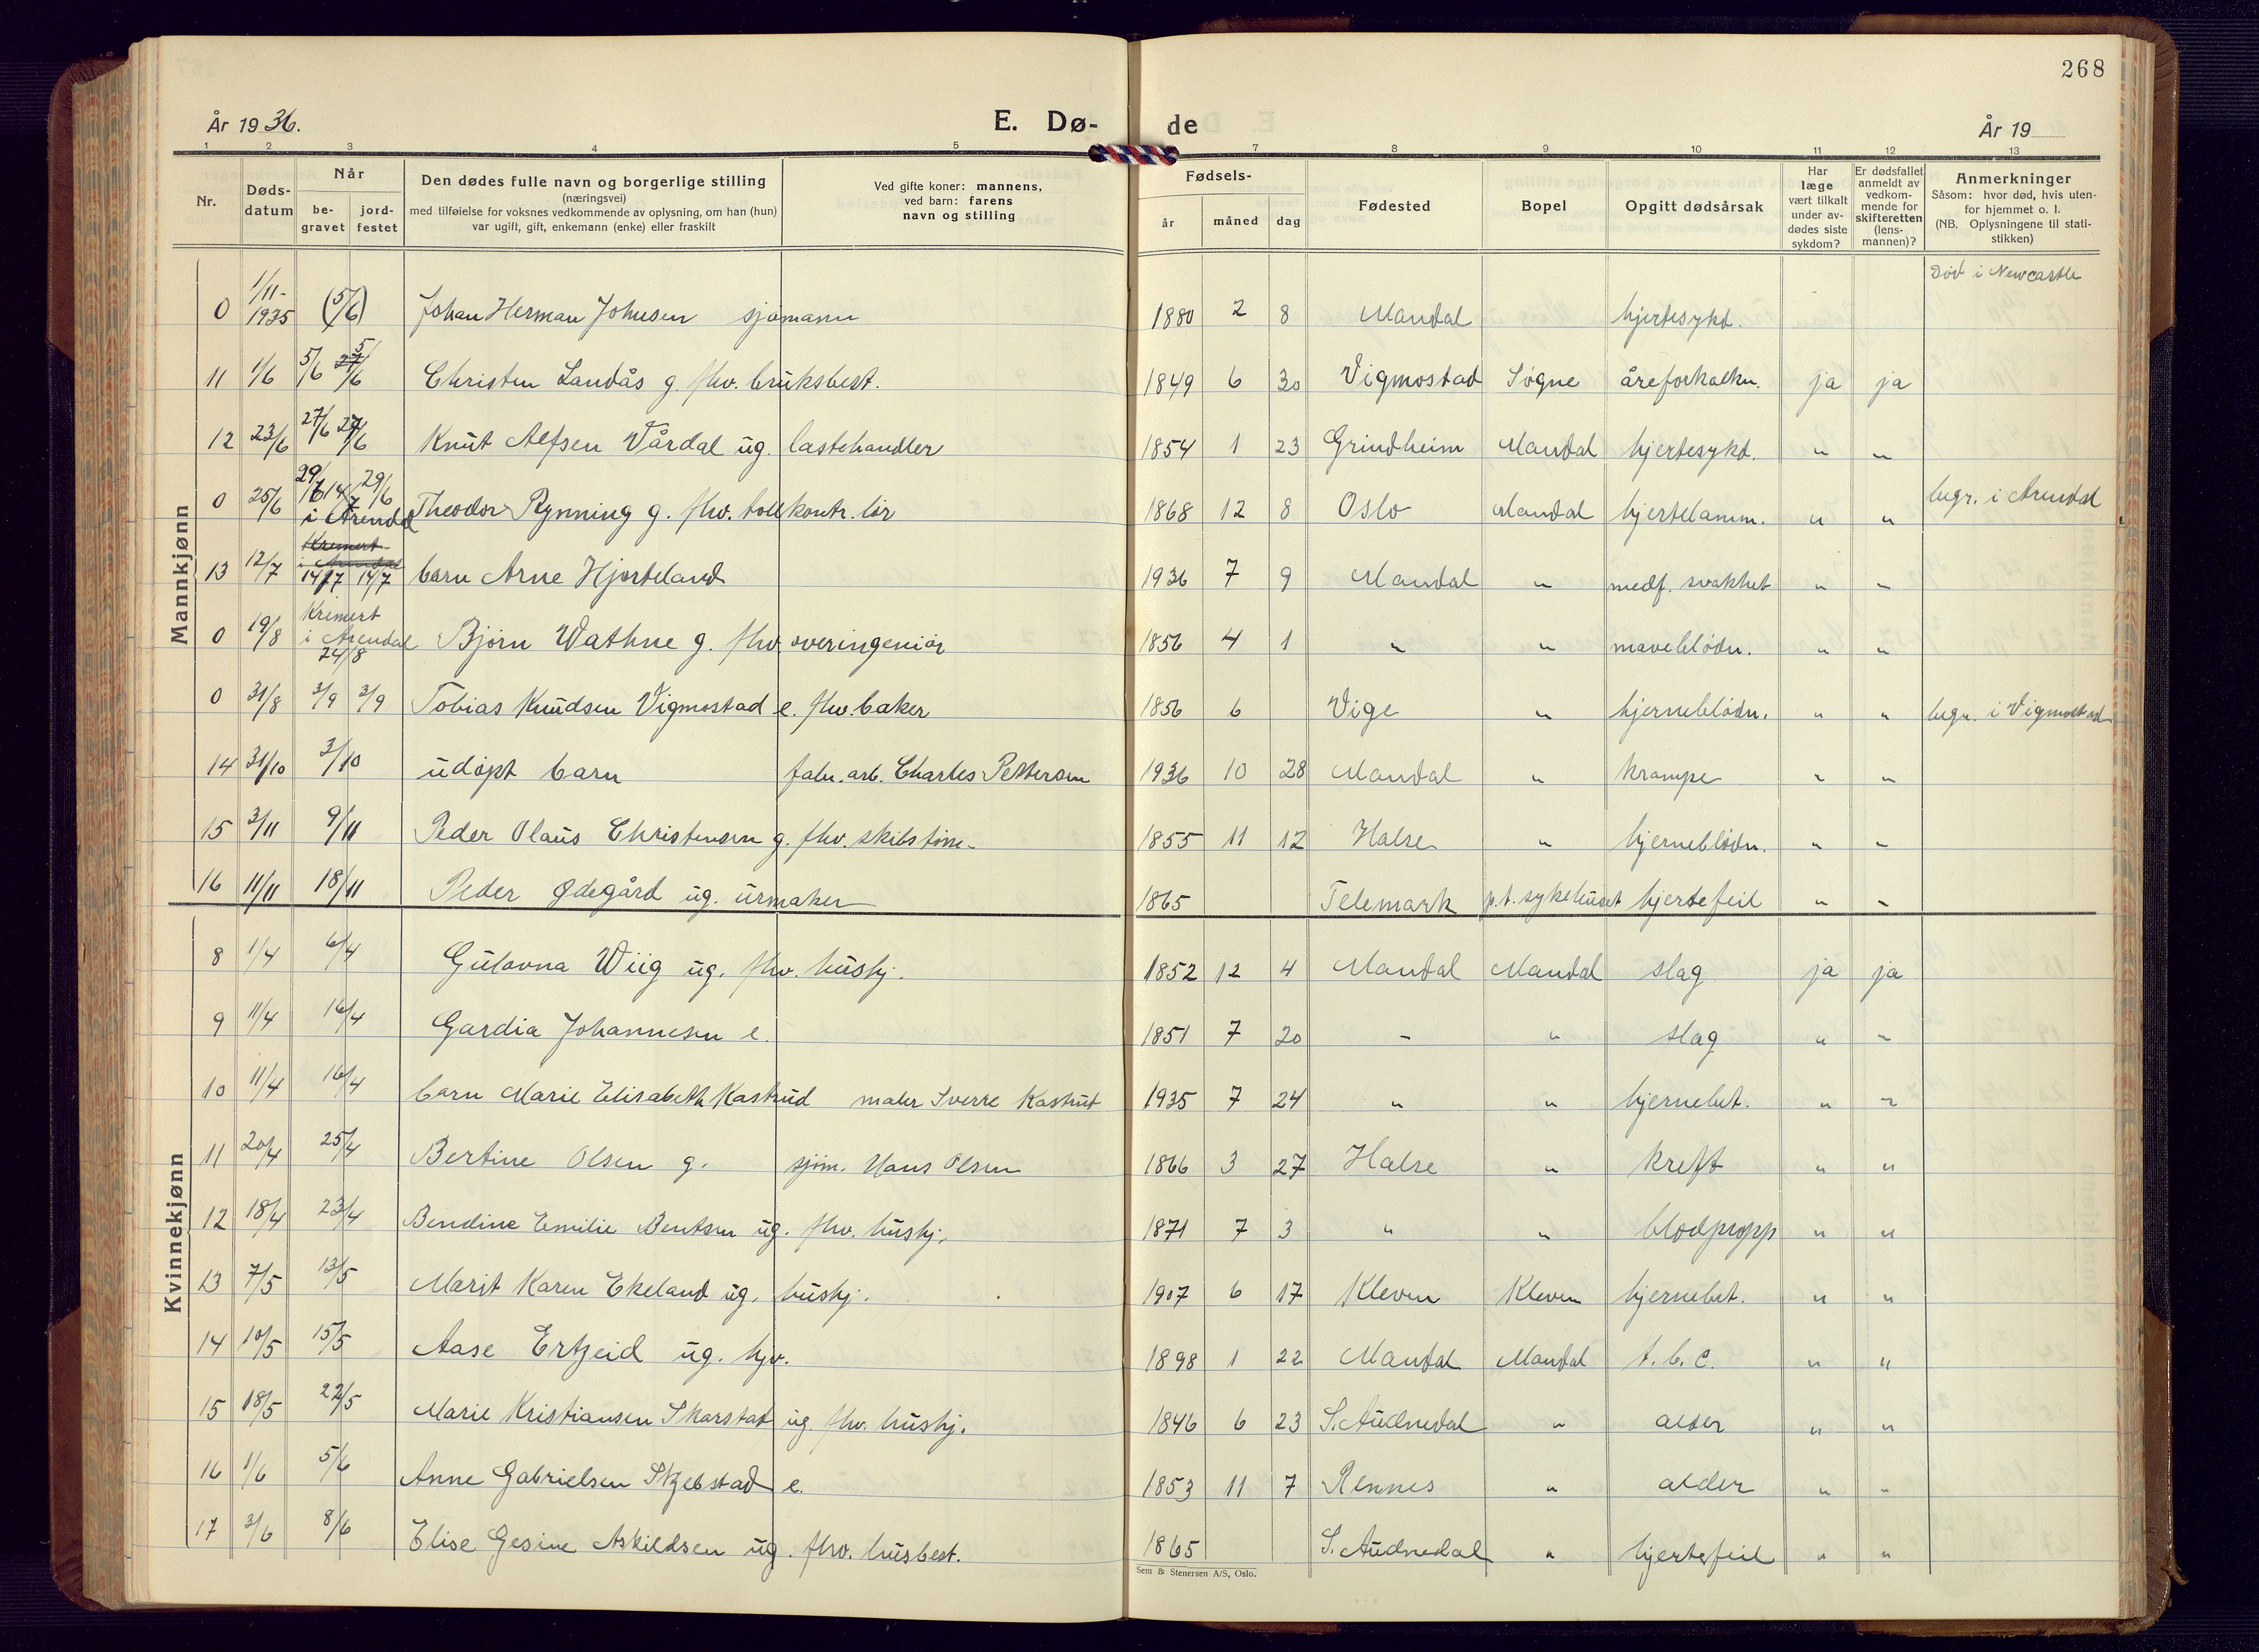 268
År 1936.
E. Dø-
de
År 19
1 2 3 4 5 7 8 9 10 11 12 13
Nr.
Døds-
datum
Når
be-
gravet
jord-
festet
Den dødes fulle navn og borgerlige stilling
(næringsvei)
med tilføielse for voksnes vedkommende av oplysning, om han (hun)
var ugift, gift, enkemann (enke) eller fraskilt
Ved gifte koner: mannens,
ved barn: farens
navn og stilling
Fødsels-
år måned dag
Fødested
Bopel
Opgitt dødsårsak
Har
læge
vært tilkalt
under av-
dødes siste
sykdom?
Er dødsfallet
anmeldt av
vedkom-
mende for
skifteretten
(lens-
mannen)?
Anmerkninger
Såsom: hvor død, hvis uten-
for hjemmet o. l.
(NB. Oplysningene til stati-
stikken)
Mannkjønn
0 1/11-1935 (5/6) Johan Herman Johnsen sjømann 1880 2 8 Mandal hjertesykd. Død i Newcastle
11 1/6 5/6 5/6 Christen Landås g. fhv. bruksbest. 1849 6 30 Vigmostad Søgne åreforkalkn. ja ja
12 23/6 27/6 27/6 Knut Alfsen Vårdal ug. lastehandler 1854 1 23 Grindheim Mandal hjertesykd. " "
0 25/6 29/6 14/7 29/6 i Arendal Theodor Rynning g. fhv. tollkontr.lør 1868 12 8 Oslo Mandal hjertelamm. " " begr. i Arendal
13 12/7 Kremert i Arendal 14/7 14/7 barn Arne Hjorteland 1936 7 9 Mandal " medf. svakhet " "
0 19/8 Kremert i Arendal 24/8 Bjørn Wathne g. fhv. overingeniør 1856 4 1 " " maveblødn. " "
0 31/8 3/9 3/9 Tobias Knudsen Vigmostad e. fhv. baker 1856 6 Vige " hjerneblødn. " " begr. i Vigmostad
14 31/10 3/10 udøpt barn fabr. arb. Charles Pettersen 1936 10 28 Mandal " krampe " "
15 3/11 9/11 Peder Olaus Christensen g. fhv. skibstøm- 1855 11 12 Halse " hjerneblødn. " "
16 11/11 18/11 Peder Ødegård ug. urmaker 1865 Telemark p.t. sykehuset hjertefeil " "
Kvinnekjønn
8 1/4 6/4 Gulovna Wiig ug. fhv. hushj. 1852 12 4 Mandal Mandal slag ja ja
9 11/4 16/4 Gardia Johannesen e. 1851 7 20 " " slag " "
10 11/4 16/4 barn Marie Elisabeth Kastrud maler Sverre Kastrud 1935 7 24 " " hjernebet. " "
11 20/4 25/4 Bertine Olsen g. sjøm. Hans Olsen 1866 3 27 Halse " kreft " "
12 18/4 23/4 Bendine Emilie Bentsen ug. fhv. hushj. 1871 7 3 " " blodpropp " "
13 7/5 13/5 Marit Karen Ekeland ug. hushj. 1907 6 17 Kleven Kleven hjernebet. " "
14 10/5 15/5 Aase Ertzeid ug. hjv. 1898 1 22 Mandal Mandal t.b.c. " "
15 18/5 22/5 Marie Kristiansen Skarstad ug. fhv. hushj. 1846 6 23 S. Audnedal " alder " "
16 1/6 5/6 Anne Gabrielsen Skjebstad e. 1853 11 7 Rennes " alder " "
17 3/6 8/6 Elise Gesine Askildsen ug. fhv. husbest. 1865 S. Audnedal " hjertefeil " "
Sem & Stenersen A/S, Oslo.